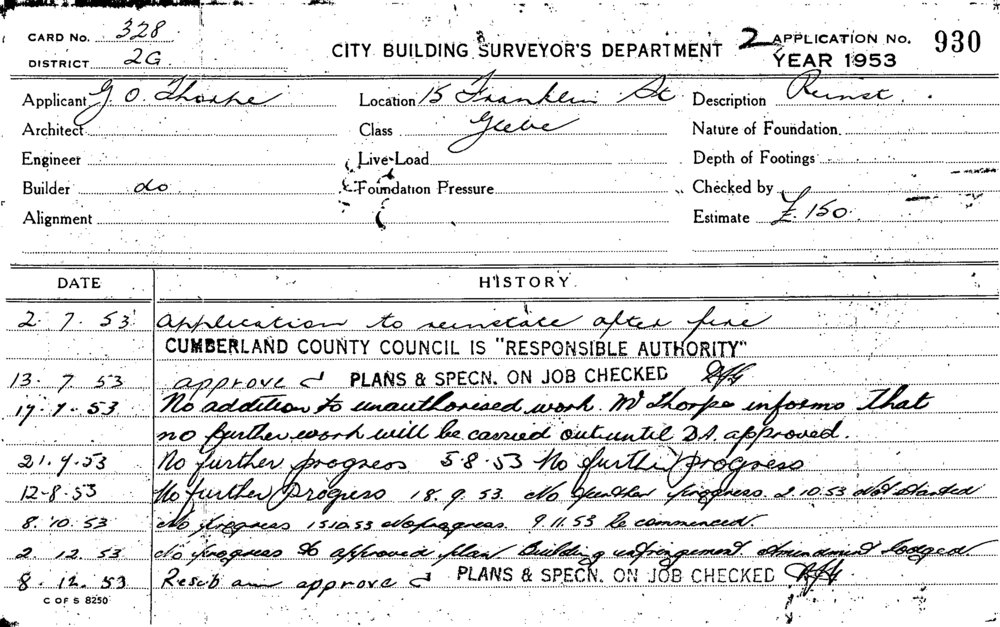 CARD No. 328
DISTRICT 2G
CITY BUILDING SURVEYOR'S DEPARTMENT
2 APPLICATION No. 930
YEAR 1953
Applicant G. O. Thorpe
Location 15 Franklin St
Description Reinst.
Architect
Class Glebe
Nature of Foundation
Engineer
Live-Load
Depth of Footings
Builder do
Foundation Pressure
Checked by
Alignment
Estimate £150
DATE HISTORY
2. 7. 53 Application to reinstate after fire
CUMBERLAND COUNTY COUNCIL IS "RESPONSIBLE AUTHORITY"
13. 7. 53 approve PLANS & SPECN. ON JOB CHECKED
17. 7. 53 No addition to unauthorised work. Mr Thorpe informs that
no further work will be carried out until D.A. approved.
53 No further progress 5.8.53 No further progress
12.8.53 No further progress 18.9.53. No further progress. 2.10.53 Not started
8. 10. 53 No progress 15.10.53 No progress. 9.11.53 Recommenced.
2. 12. 53 No progress to approved plan Building Amendment lodged.
8. 12. 53 approve PLANS & SPECN. ON JOB CHECKED
C OF S 8250